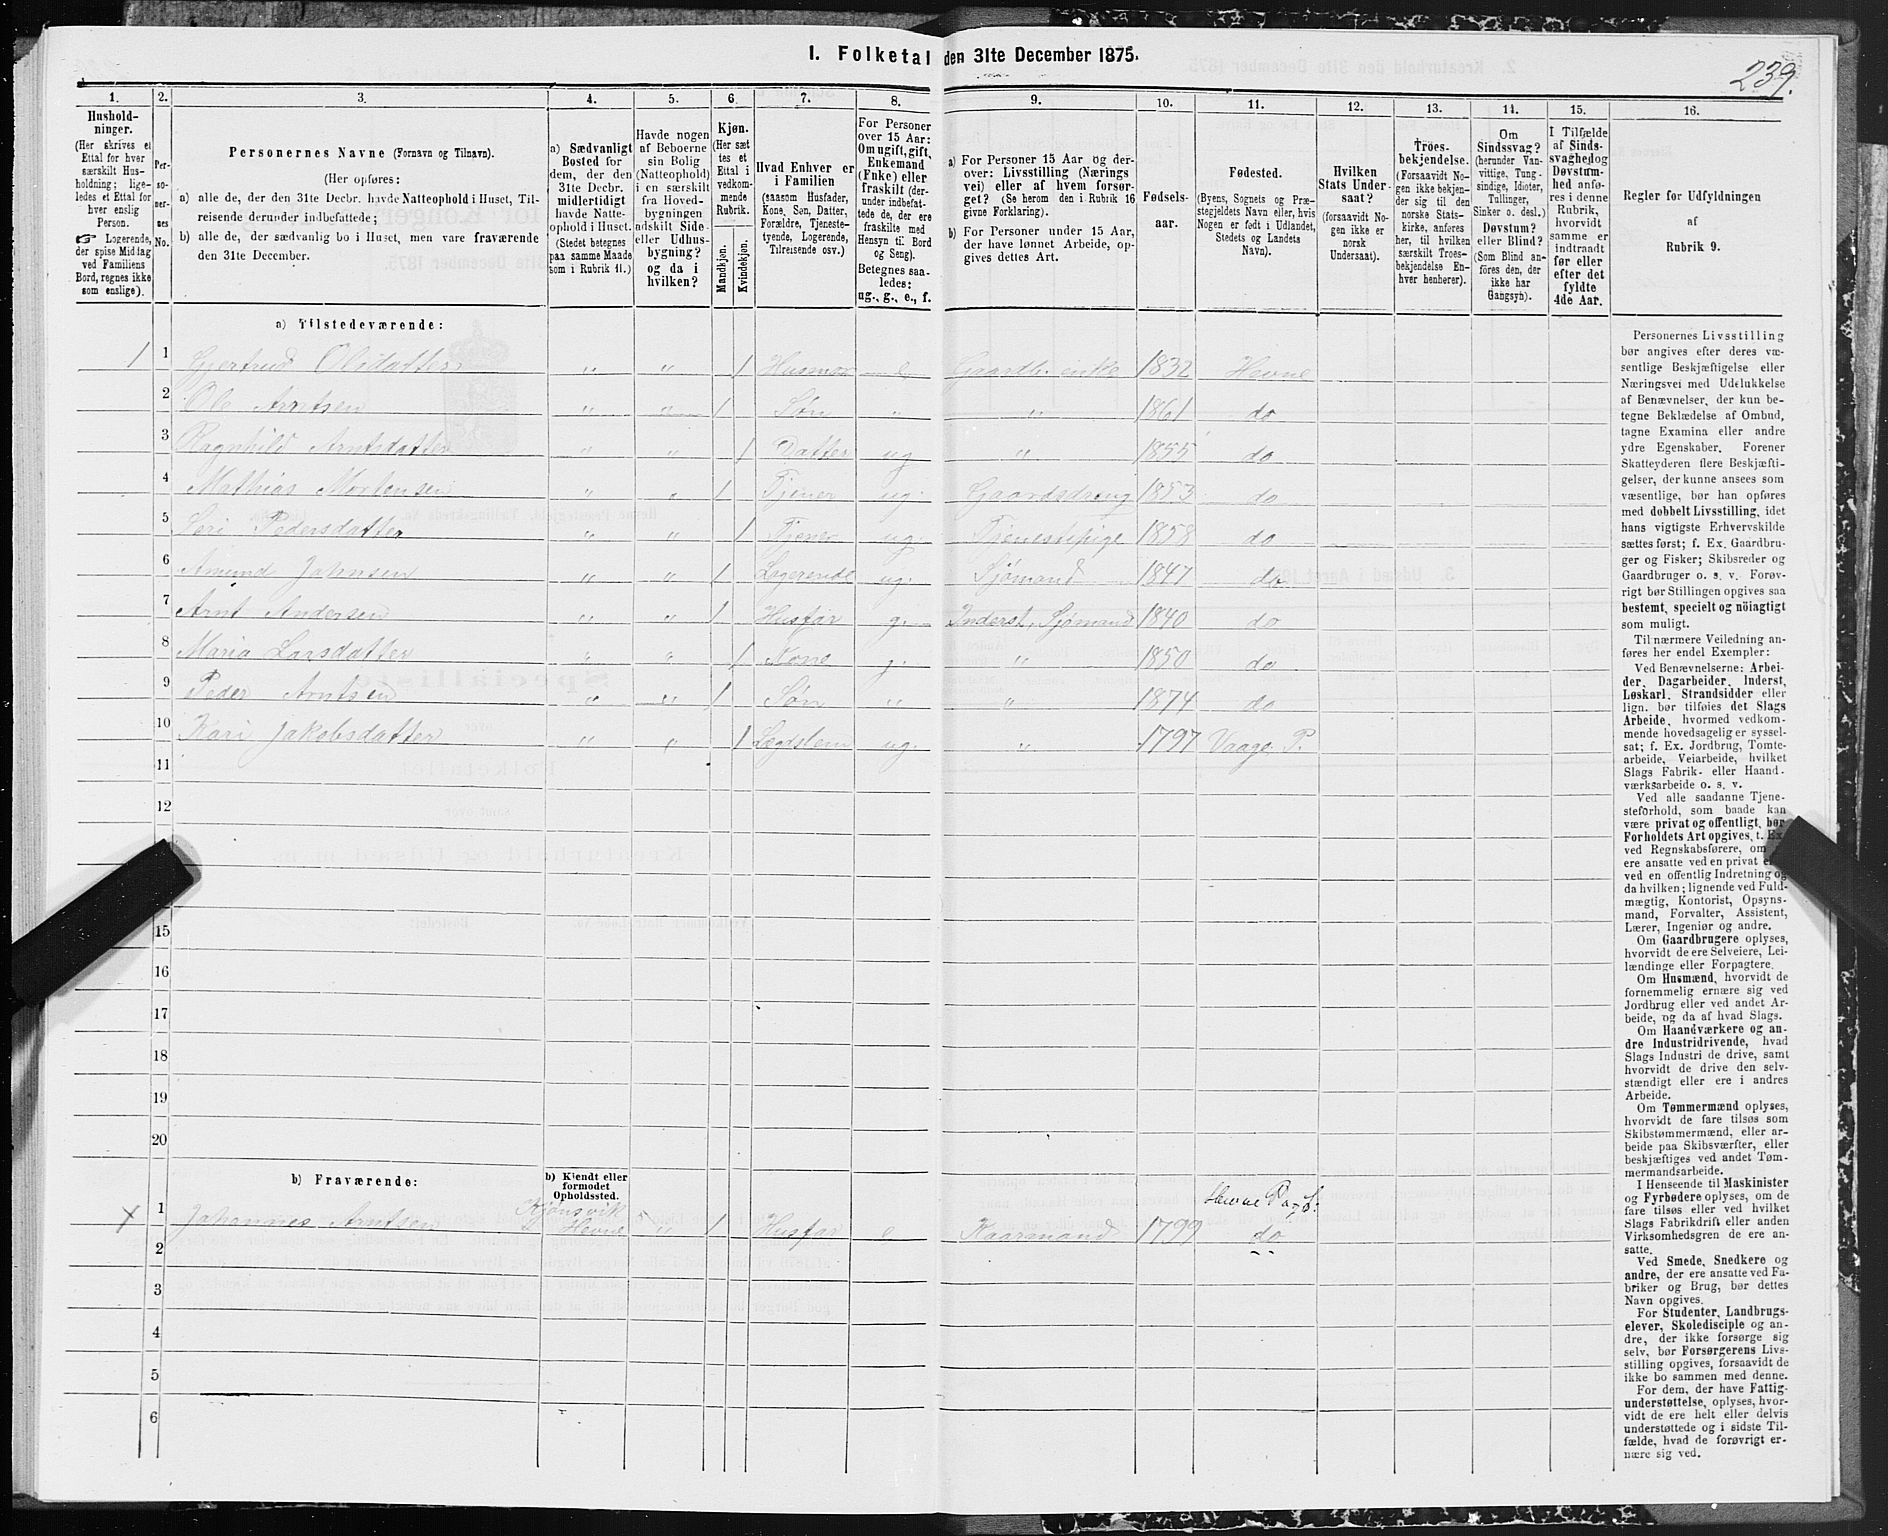 1. Folketal den 31te December 1875.
239.
1. 2. 3. 4. 5. 6. 7. 8. 9. 10. 11. 12. 13. 14. 15. 16.
Hushold-
ninger.
(Her skrives et
Ettal for hver
særskilt Hus-
holdning; lige-
ledes et Ettal for
hver enslig
Person.
☞ Logerende,
der spise Middag
ved Familiens
Bord, regnes ikke
som enslige).
Per-
so-
ner-
nes
No.
Personernes Navne (Fornavn og Tilnavn).
(Her opføres:
a) alle de, der den 31te Decbr. havde Natteophold i Huset, Til-
reisende derunder indbefattede;
b) alle de, der sædvanlig bo i Huset, men vare fraværende
den 31te December.
a) Sædvanligt
Bosted for
dem, der den
31te Decbr.
midlertidigt
havde Natte-
ophold i Huset.
(Stedet betegnes
paa samme Maade
som i Rubrik 11.)
Havde nogen
af Beboerne
sin Bolig
(Natteophold)
i en særskilt
fra Hoved-
bygningen
adskilt Side-
eller Udhus-
bygning?
og da i
hvilken?
Kjøn.
(Her sæt
tes et
Ettal i
vedkom-
mende
Rubrik.
Mandkjøn.
Kvindekjøn.
Hvad Enhver er
i Familien
(saasom Husfader,
Kone, Søn, Datter,
Forældre, Tjeneste-
tyende, Logerende,
Tilreisende osv.)
For Personer
over 15 Aar:
Om ugift, gift,
Enkemand
(Enke) eller
fraskilt (der-
under indbefat-
tede de, der ere
fraskilte med
Hensyn til Bord
og Seng).
Betegnes saa-
ledes:
ug., g., e., f.
a) For Personer 15 Aar og der-
over: Livsstilling (Nærings
vei) eller af hvem forsør-
get? (Se herom den i Rubrik 16
givne Forklaring).
b) For Personer under 15 Aar,
der have lønnet Arbeide, op-
gives dettes Art.
Fødsels-
aar.
Fødested.
(Byens, Sognets og Præ-
stegjeldets Navn eller, hvis
Nogen er født i Udlandet,
Stedets og Landets
Navn).
Hvilken
Stats Under-
saat?
(forsaavidt No-
gen ikke er
norsk
Undersaat).
Troes-
bekjendelse.
(Forsaavidt No-
gen ikke bekjen-
der sig til den
norske Stats-
kirke, anføres
her, til hvilken
særskilt Troes-
bekjendelse En-
hver henhører).
Om
Sindssvag?
(herunder Van-
vittige, Tung-
sindige, Idioter,
Sinker o. desl.)
Døvstum?
eller Blind?
(Som Blind an-
føres den, der
ikke har
Gangsyn).
I Tilfælde
af Sinds-
svaghed og
Døvstum-
hed anfø-
res i denne
Rubrik,
hvorvidt
samme er
indtraadt
før eller
efter det
fyldte
4de Aar.
Regler for Udfyldningen
af
Rubrik 9.
a) Tilstedeværende:
1 1 Gjertrud Olsdatter " " 1 Husmor e Gaardb. enke 1832 Hevne
2 Ole Arntsen " " 1 Søn " " 1861 do
3 Ragnhild Arntsdatter " " 1 Datter ug " 1855 do
4 Mathias Mortensen " " 1 Tjener ug. Gaardsdreng 1853 do
5 Seri Pedersdatter " " 1 Tjener ug. Tjenestepige 1858 do
6 Amund Jahnsen " " 1 Logerende ug. Sjømand 1847 do
7 Arnt Andersen " " 1 Husfar g. Inderst, Sjømand 1840 do
8 Maria Larsdatter " " 1 Kone g. " 1850 do
9 Peder Arntsen " " 1 Søn " " 1874 do
10 Kari Jakobsdatter " " 1 Lægdslem ug. " 1797 Vaage P.
11
12
15
16
17
18
19
20
b) Fraværende:
b) Kjendt eller
formodet
Opholdssted.
1 Johannes Arntsen Kjønsvik Hevne " 1 Husfar e Kaarmand 1799 Hevne do
2
3
4
5
6
Personernes Livsstilling
bør angives efter deres væ-
sentlige Beskjæftigelse eller
Næringsvei med Udelukkelse
af Benævnelser, der kun be-
tegne Beklædelse af Ombud,
tagne Examina eller andre
ydre Egenskaber. Forener
Skatteyderen flere Beskjæfti-
gelser, der kunne ansees som
væsentlige, bør han opføres
med dobbelt Livsstilling, idet
hans vigtigste Erhvervskilde
sættes først; f. Ex. Gaardbru-
ger og Fisker; Skibsreder og
Gaardbruger o. s. v. Forøv-
rigt bør Stillingen opgives saa
bestemt, specielt og nöiagtigt
som muligt.
Til nærmere Veiledning an-
føres her endel Exempler:
Ved Benævnelserne: Arbei-
der, Dagarbeider, Inderst,
Løskarl, Strandsidder eller
lign. bør tilføies det Slags
Arbeide, hvormed vedkom-
mende hovedsagelig er syssel-
sat; f. Ex. Jordbrug, Tomte-
arbeide, Veiarbeide, hvilket
Slags Fabrik- eller Haand-
værksarbeide o. s. v.
Ved alle saadanne Tjene-
steforhold, som baade kan
være privat og offentligt, bør
Forholdets Art opgives, t. Ex.
ved Regnskabsførere, om
ere ansatte ved en privat
ved en offentlig Indretning og
da hvilken; lignende ved Fuld-
mægtig, Kontorist, Opsyns-
mand, Forvalter, Assistent,
Lærer, Ingeniør og andre.
Om Gaardbrugere oplyses,
hvorvidt de ere Selveiere, Lei-
lændinge eller Forpagtere.
Om Husmænd, hvorvidt de
fornemmelig ernære sig ved
Jordbrug eller ved andet Ar-
beide, og da af hvad Slags.
Om Haandværkere og an-
dre Industridrivende, hvad
Slags Industri de drive, samt
hvorvidt de drive den selv-
stændigt eller ere i andres
Arbeide.
Om Tømmermænd oplyses,
hvorvidt de fare tilsøs som
Skibstømmermænd, eller ar-
beide paa Skibsværfter, eller
beskjæftiges ved andet Tøm-
mermandsarbeide.
I Henseende til Maskinister
og Fyrbødere oplyses, om de
fare tilsøs eller ved hvilket
Slags Fabrikdrift eller anden
Virksomhedsgren de ere an-
satte.
Ved Smede, Snedkere og
andre, der ere ansatte ved Fa-
briker og Brug, bør dettes
Navn opgives.
For Studenter, Landbrugs-
elever, Skoledisciple og an-
dre, der ikke forsørge sig
selv, bør Forsørgerens Livs-
stilling opgives, forsaavidt de
ikke bo sammen med denne.
For dem, der have Fattig-
understøttelse, oplyses, hvor-
vidt de ere helt eller delvis
understøttede og i sidste Til-
fælde, hvad de forøvrigt er-
nære sig ved.